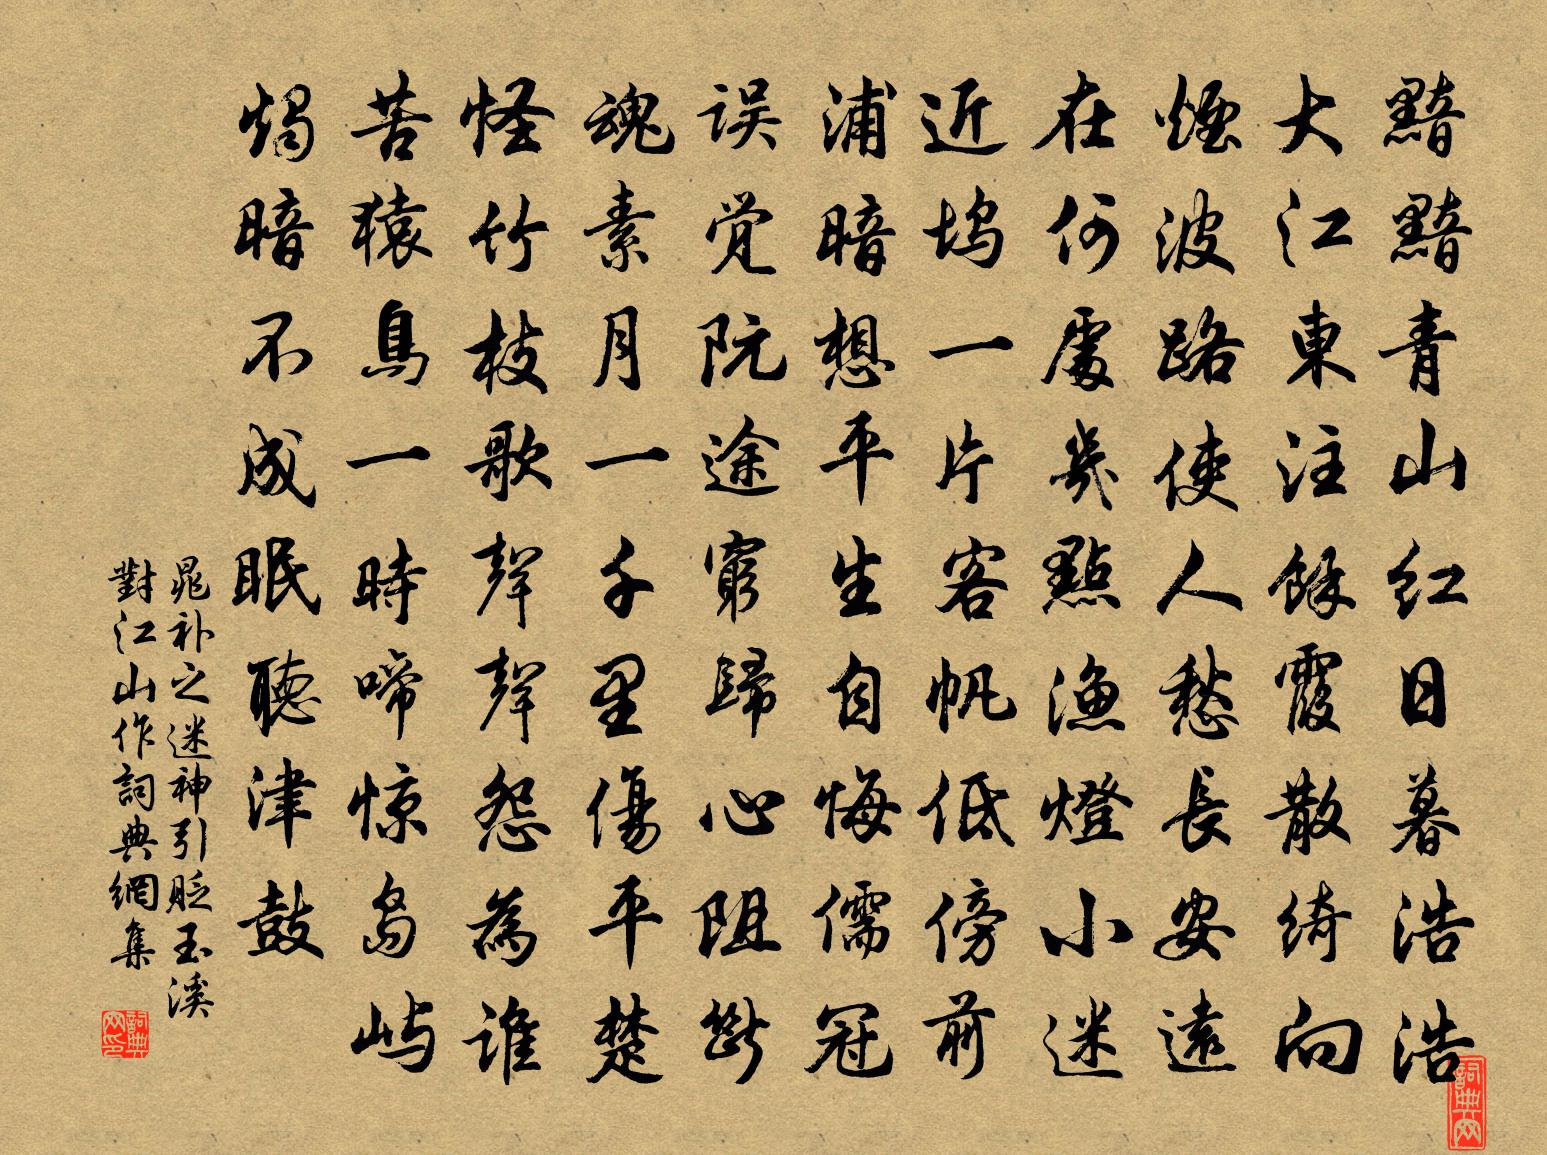 黯黯青山红日暮浩浩
大江東注餘霞散绮向
煙波路使人愁長安遠
在何處幾點漁燈小迷
近坞一片客帆低傍前
浦暗想平生自悔儒冠
误觉阮途窮歸心阻斷
魂素月一千里傷平楚
怪竹枝歌聲聲怨為谁
苦猿鳥一時啼惊岛屿
烛暗不成眠聽津鼓
晁补之迷神引貶玉溪
對江山作詞典網集
詞典网
詞典网